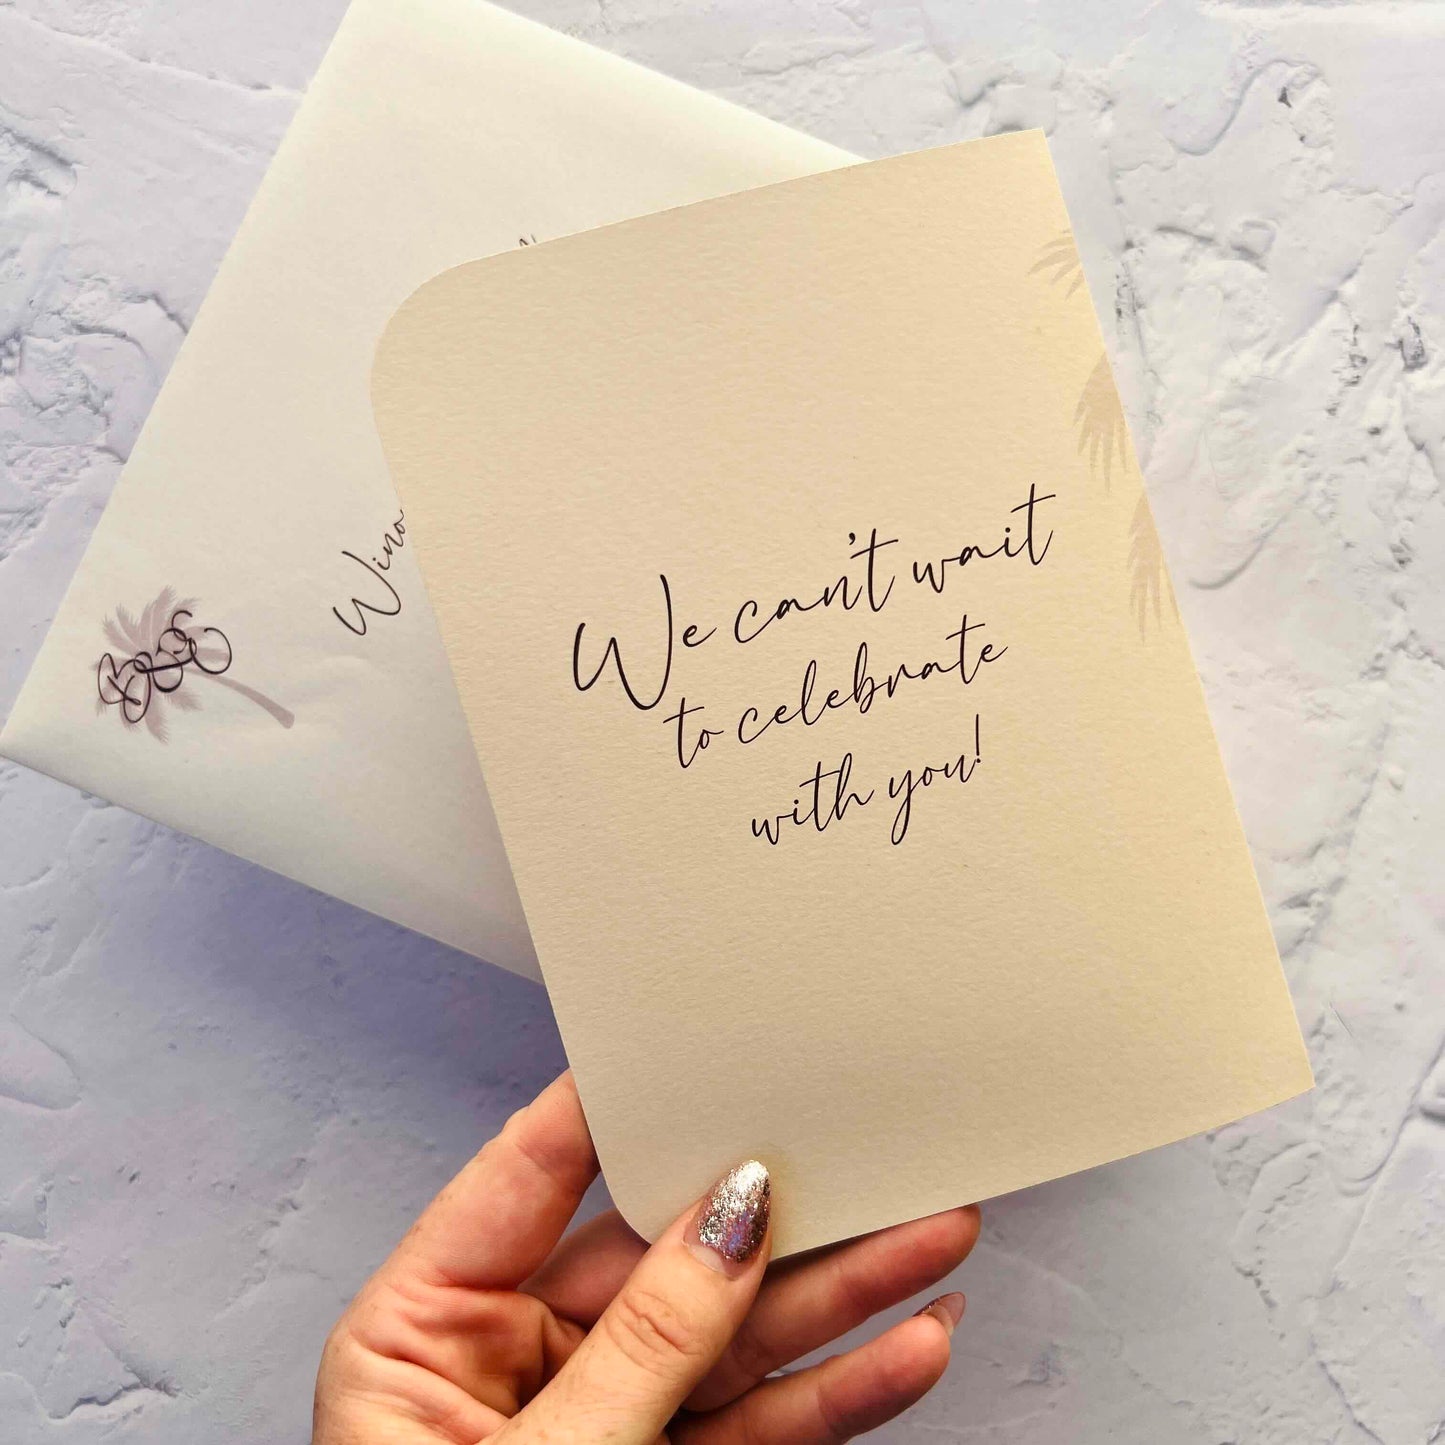 We can't wait
to celebrate
with you!